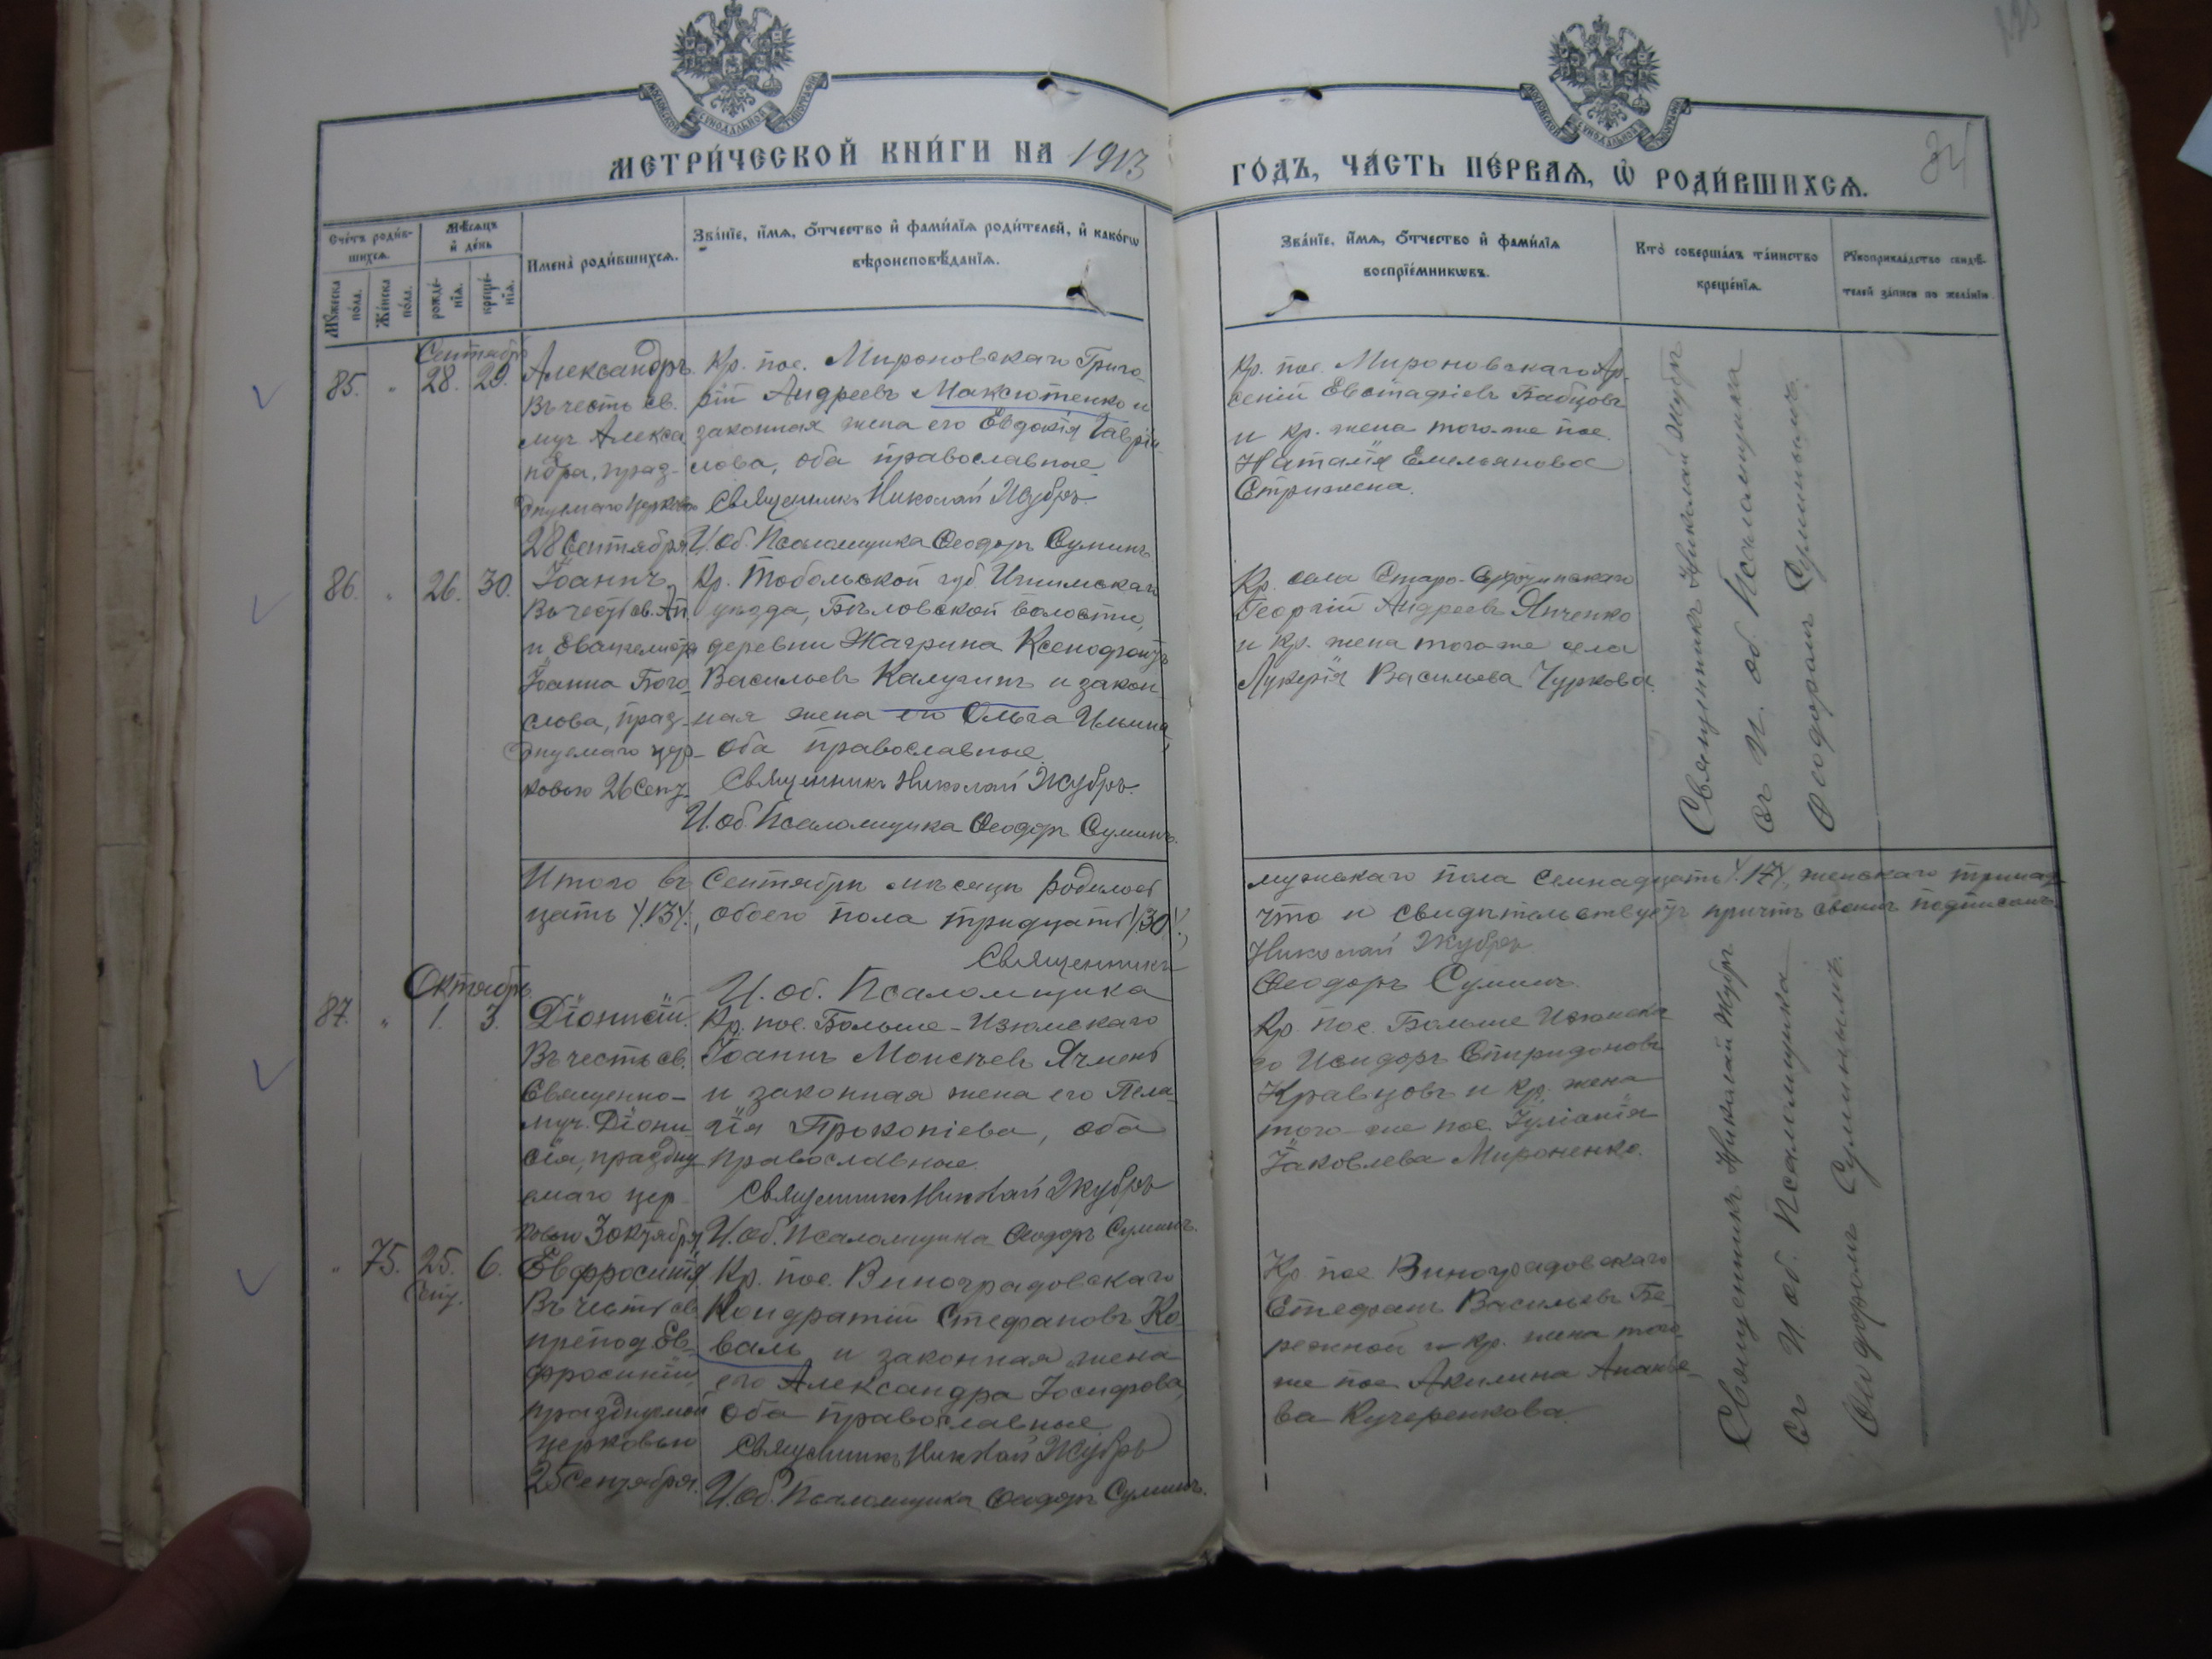 МОСКОВСКОЙ СУНОДАЛЬНОЙ ТИПОГРАФІИ
МОСКОВСКОЙ СУНОДАЛЬНОЙ ТИПОГРАФІИ
МЕТРИ́ЧЕСКОЙ КНИ́ГИ НА 1913
ГО́ДЪ, ЧА́СТЬ ПЕ́РВАЯ, Ѡ РОДИ́ВШИХСЯ.
84
Сче́тъ роди́в-
шихся.
Мѣ́сяцъ
и де́нь
Му́жеска по́ла.
Же́нска по́ла.
рожде́-
нія.
креще́-
нія.
Имена̀ роди́вшихся.
Зва́ніе, и́мя, о́тчество и фами́лія роди́телей, и како́гѡ
вѣроисповѣ́данія.
Зва́ніе, и́мя, о́тчество и фами́лія
воспріе́мникѡвъ.
Кто̀ соверша́лъ та́инство
креще́нія.
Рукоприкла́дство свидѣ́-
телей за́писи по жела́нію.
Сентябрь
85. " 28. 29.
Александръ
Въ честь св.
муч Алекса
ндра, праз-
днуемаго церковью
28 Сентября
Кр. пос. Мироновскаго Григо-
рій Андреевъ Максютенко и
законная жена его Евдокія Гаврі-
лова, оба православные
Священникъ Николай Жубръ
И. об. Псаломщика Ѳеодоръ Суминъ
Кр. пос. Мироновскаго Ар-
сеній Евстафіевъ Бабцовъ
и кр. жена того-же пос.
Наталія Емельянова
Стрижена.
86. " 26. 30.
Іоаннъ
Въ честь св. Ап.
и Евангелиста
Іоанна Бого-
слова, праз-
днуемаго цер-
ковью 26 Сент.
Кр. Тобольской губ Ишимскаго
уѣзда, Бѣловской волости,
деревни Жагрина Ксенофонтъ
Васильевъ Калугинъ и закон
ная жена его Ольга Ильина,
оба православные.
Священникъ Николай Жубръ.
И. об. Псаломщика Ѳеодоръ Суминъ.
Кр. села Старо-
Георгій Андреевъ Янченко
и кр. жена того же села
Лукерія Васильева Чуркова.
Священникъ Николай Жубръ
съ И. об. Псаломщика
Ѳеодоромъ Суминымъ.
Итого въ Сентябрѣ мѣсяцѣ родилось
мужескаго пола семнадцать /17/, женскаго тринад-
цать /13/, обоего пола тридцать /30/,
что и свидѣтельствуетъ причтъ своимъ подписомъ.
Священникъ
Николай Жубръ.
И. об. Псаломщика
Ѳеодоръ Суминъ.
Октябрь
87. " 1. 3.
Діонисій.
Въ честь св.
Священно-
муч. Діони-
сія, праздну
емаго цер-
ковью 3 октября
Кр. пос. Больше-Изюмскаго
Іоаннъ Моисѣевъ Ячмень
и законная жена его Пела-
гія Прокопіева, оба
православные.
Священникъ Николай Жубръ
И. об. Псаломщика Ѳеодоръ Суминъ.
Кр. пос. Больше Изюмска
го Исидоръ Спиридоновъ
Кравцовъ и кр. жена
того-же пос Іуліанія
Іаковлева Мироненко.
" 75. 25. 6.
Сент.
Евфросинія
Въ честь св
препод Ев-
фросиніи,
празднуемой
церковью
25 сентября.
Кр. пос. Виноградовскаго
Кондратій Стефановъ Ко
валь и законная жена
его Александра Іосифова,
оба православные
Священникъ Николай Жубръ
И. об. Псаломщика Ѳеодоръ Суминъ.
Кр. пос Виноградовскаго
Стефанъ Васильевъ Бе-
режной и кр. жена того
же пос Акилина Ананье-
ва Кучеренкова.
Священникъ Николай Жубръ
съ И. об. Псаломщика
Ѳеодоромъ Суминымъ.